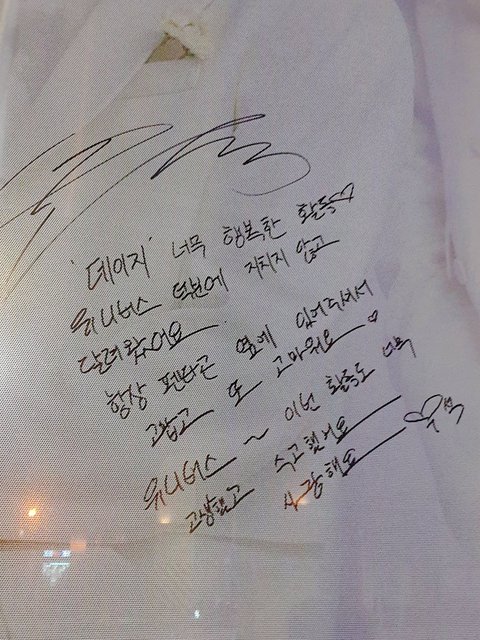 '데이지' 너무 행복한 활동♡
유니버스 덕분에 지치지 않고
달려왔어요.
항상 펜타곤 옆에 있어주셔서
고맙고 또 고마워요♡
유니버스~ 이번 활동도 너무
고생했고 수고했어요
사랑해요 ♡우석